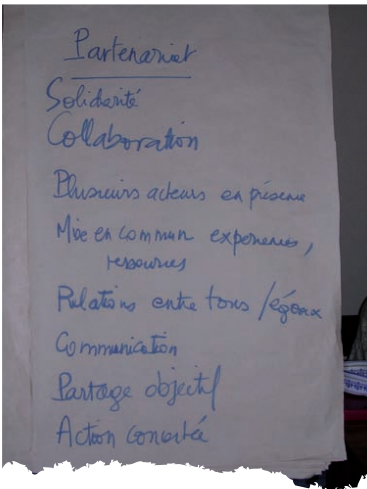 Partenariat
Solidarité
Collaboration
Plusieurs acteurs en présence
Mise en commun experiences,
ressources
Relations entre tous / égaux
Communication
Partage objectif
Action concertée